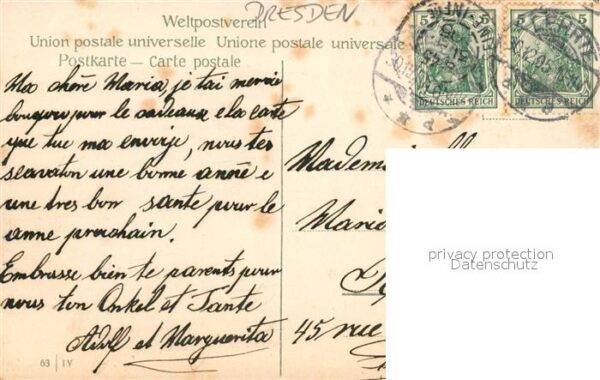 Weltpostverein
DRESDEN
Union postale universelle Unione postale universale
Postkarte — Carte postale
5 5
DEUTSCHES REICH DEUTSCHES REICH
LEHRTE
30.12.05
Ma chère Maria, je tai mercie
boucoup pour le cadeaux e la carte
que tue ma envoije, nous tes
une bonne année e
une tres bon sante pour le
anne prochain.
Embrasse bien te parents pour
nous ton Onkel et Tante
Adolf et Marguerita
63 | IV
Mademoiselle
Maria
45 rue
privacy protection
Datenschutz